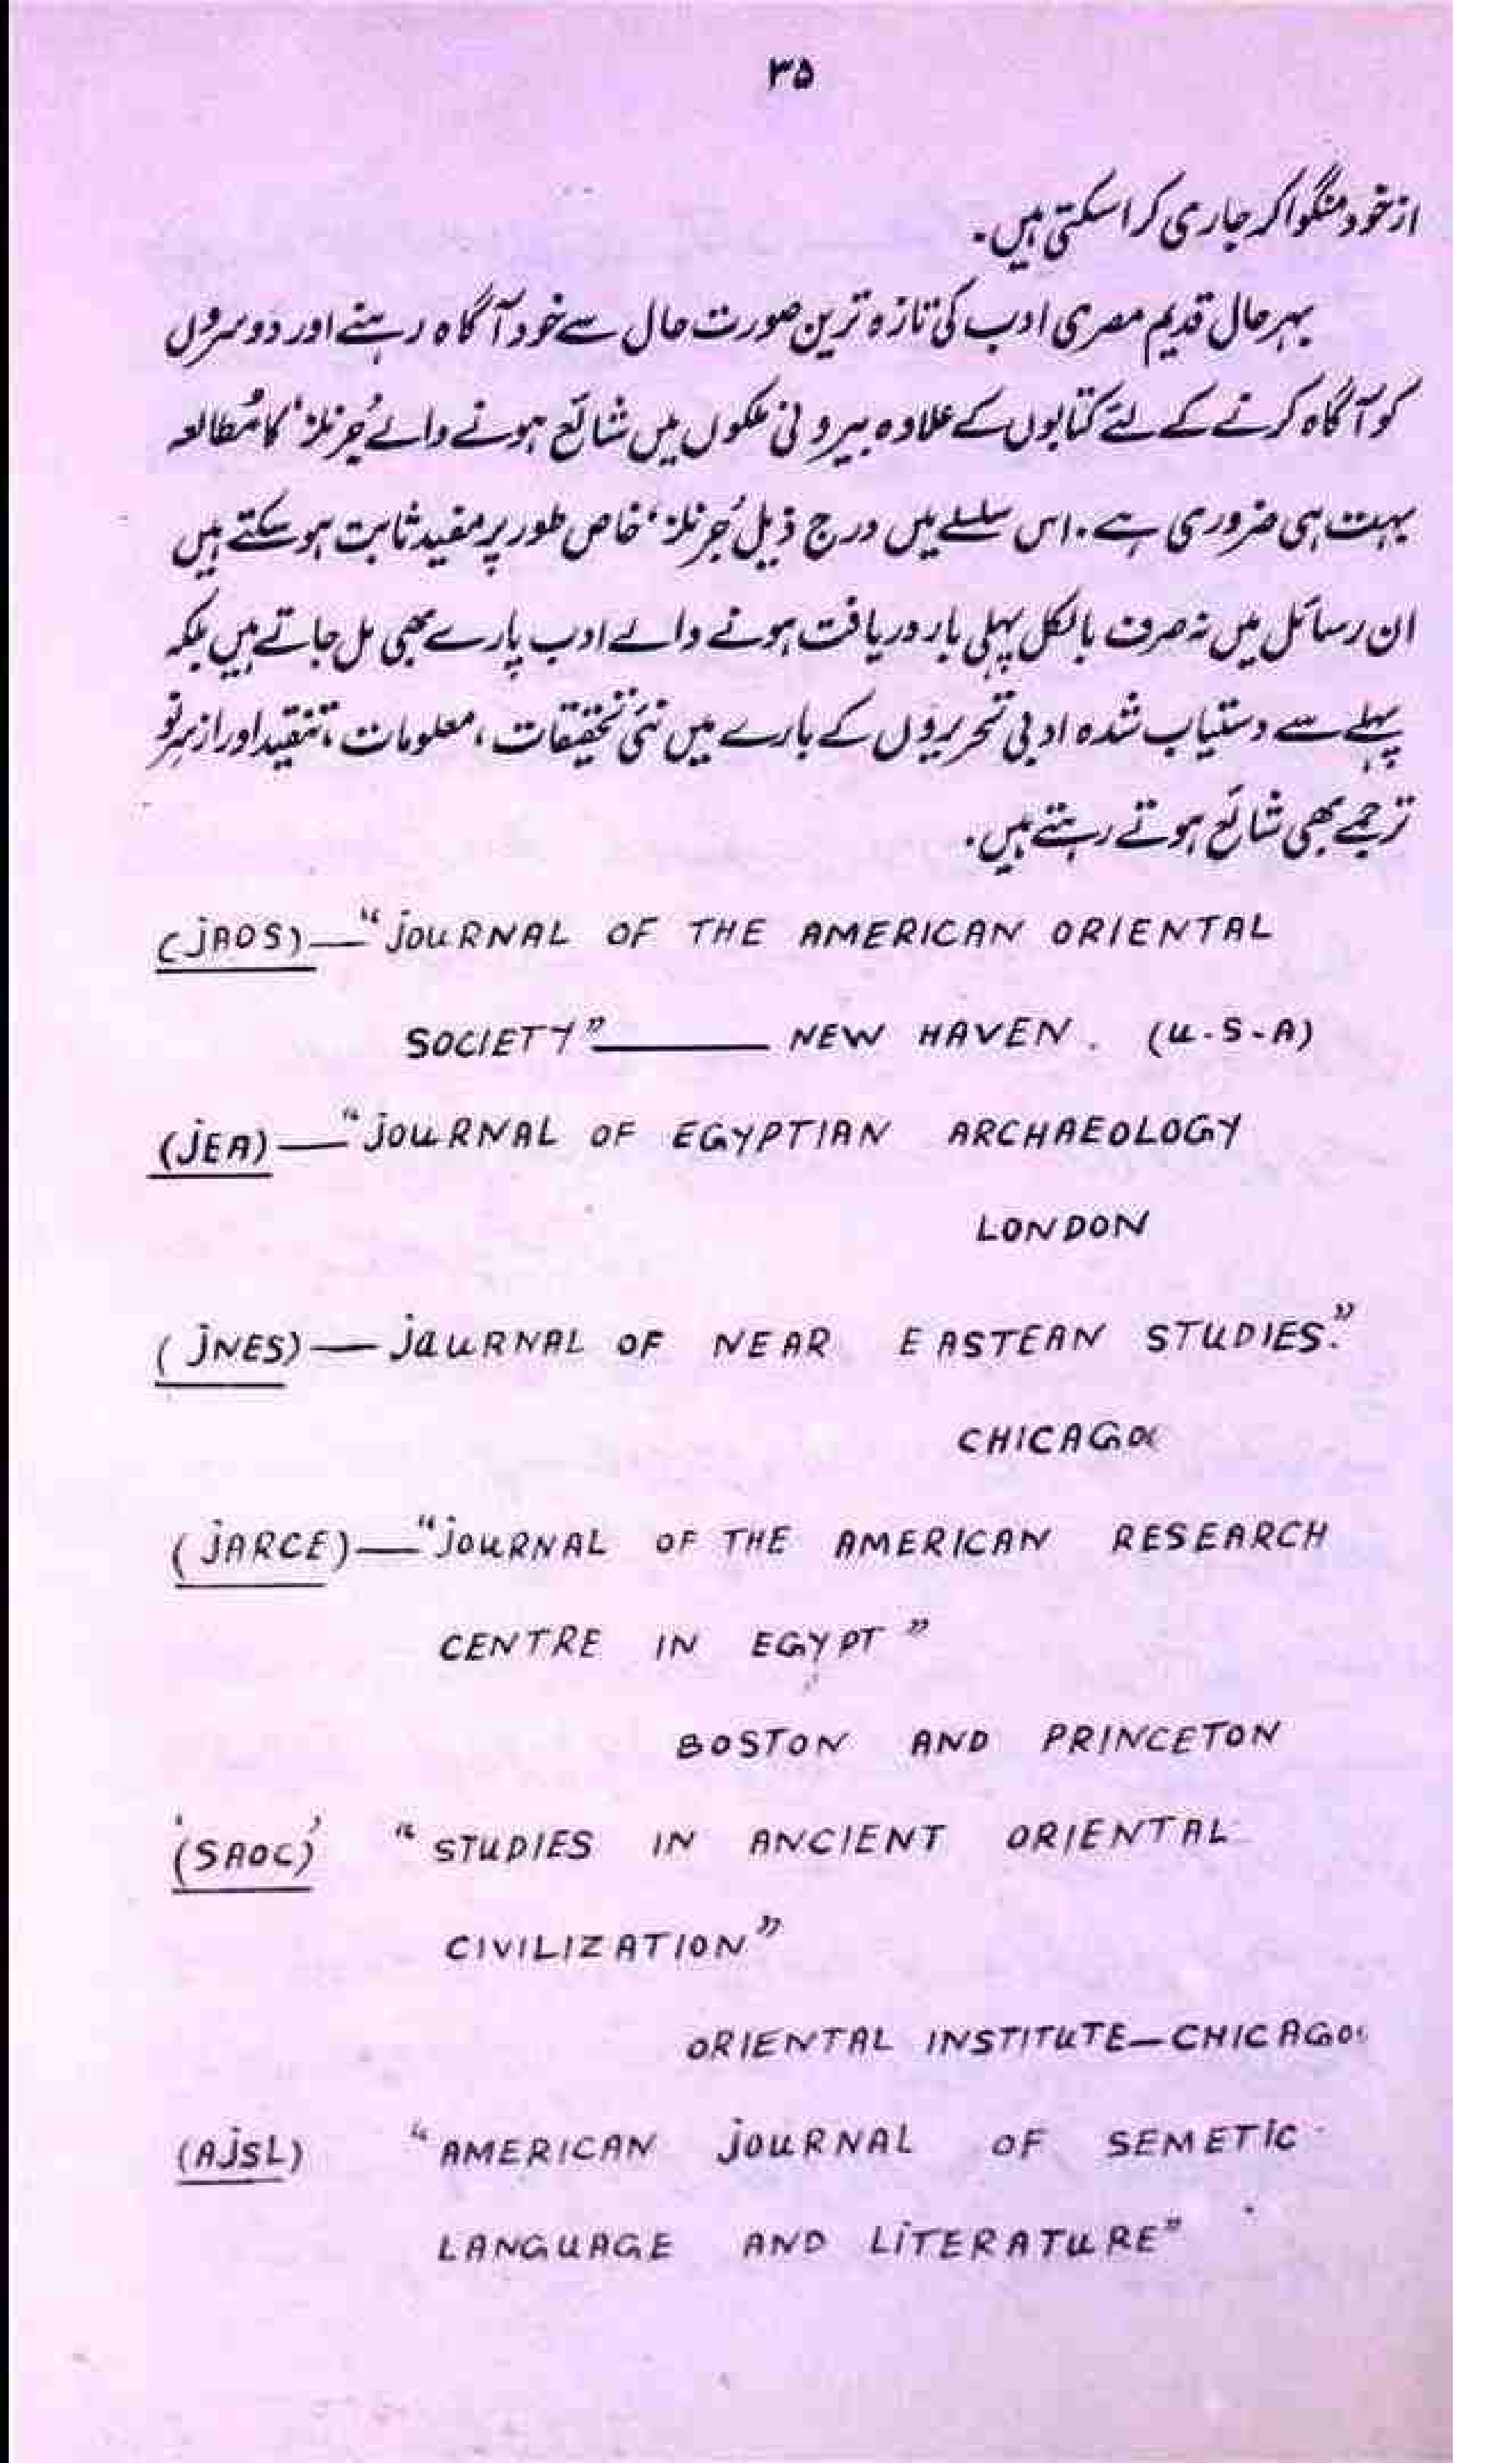 ۳۵
از خود منگوا کر جاری کرا سکتی ہیں۔
بہر حال قدیم مصری ادب کی تازہ ترین صورت حال سے خود آگاہ رہنے اور دوسروں
کو آگاہ کرنے کے لئے کتابوں کے علاوہ بیرونی ملکوں میں شائع ہونے والے ’جُرنلز‘ کا مُطالعہ
بہت ہی ضروری ہے۔ اس سلسلے میں درج ذیل ’جُرنلز‘ خاص طور پر مفید ثابت ہو سکتے ہیں
ان رسائل میں نہ صرف بالکل پہلی بار دریافت ہونے والے ادب پارے بھی مل جاتے ہیں بلکہ
پہلے سے دستیاب شدہ ادبی تحریروں کے بارے میں نئی تحقیقات، معلومات، تنقید اور از سرِ نو
ترجمے بھی شائع ہوتے رہتے ہیں۔
(jAOS)—“jouRNAL OF THE AMERICAN ORIENTAL
SOCIETY”——— NEW HAVEN. (u.S.A)
(jEA)—“jouRNAL OF EGYPTIAN ARCHAEOLOGY
LONDON
(jNES)—jauRNAL OF NEAR EASTEAN STUDIES.”
CHICAGO
(jARCE)—“jouRNAL OF THE AMERICAN RESEARCH
CENTRE IN EGYPT”
BOSTON AND PRINCETON
‘(SAOC)’ “STUDIES IN ANCIENT ORIENTAL
CIVILIZATION”
ORIENTAL INSTITUTE—CHICAGO
(AjSL) “AMERICAN jouRNAL OF SEMETIC
LANGUAGE AND LITERATURE”